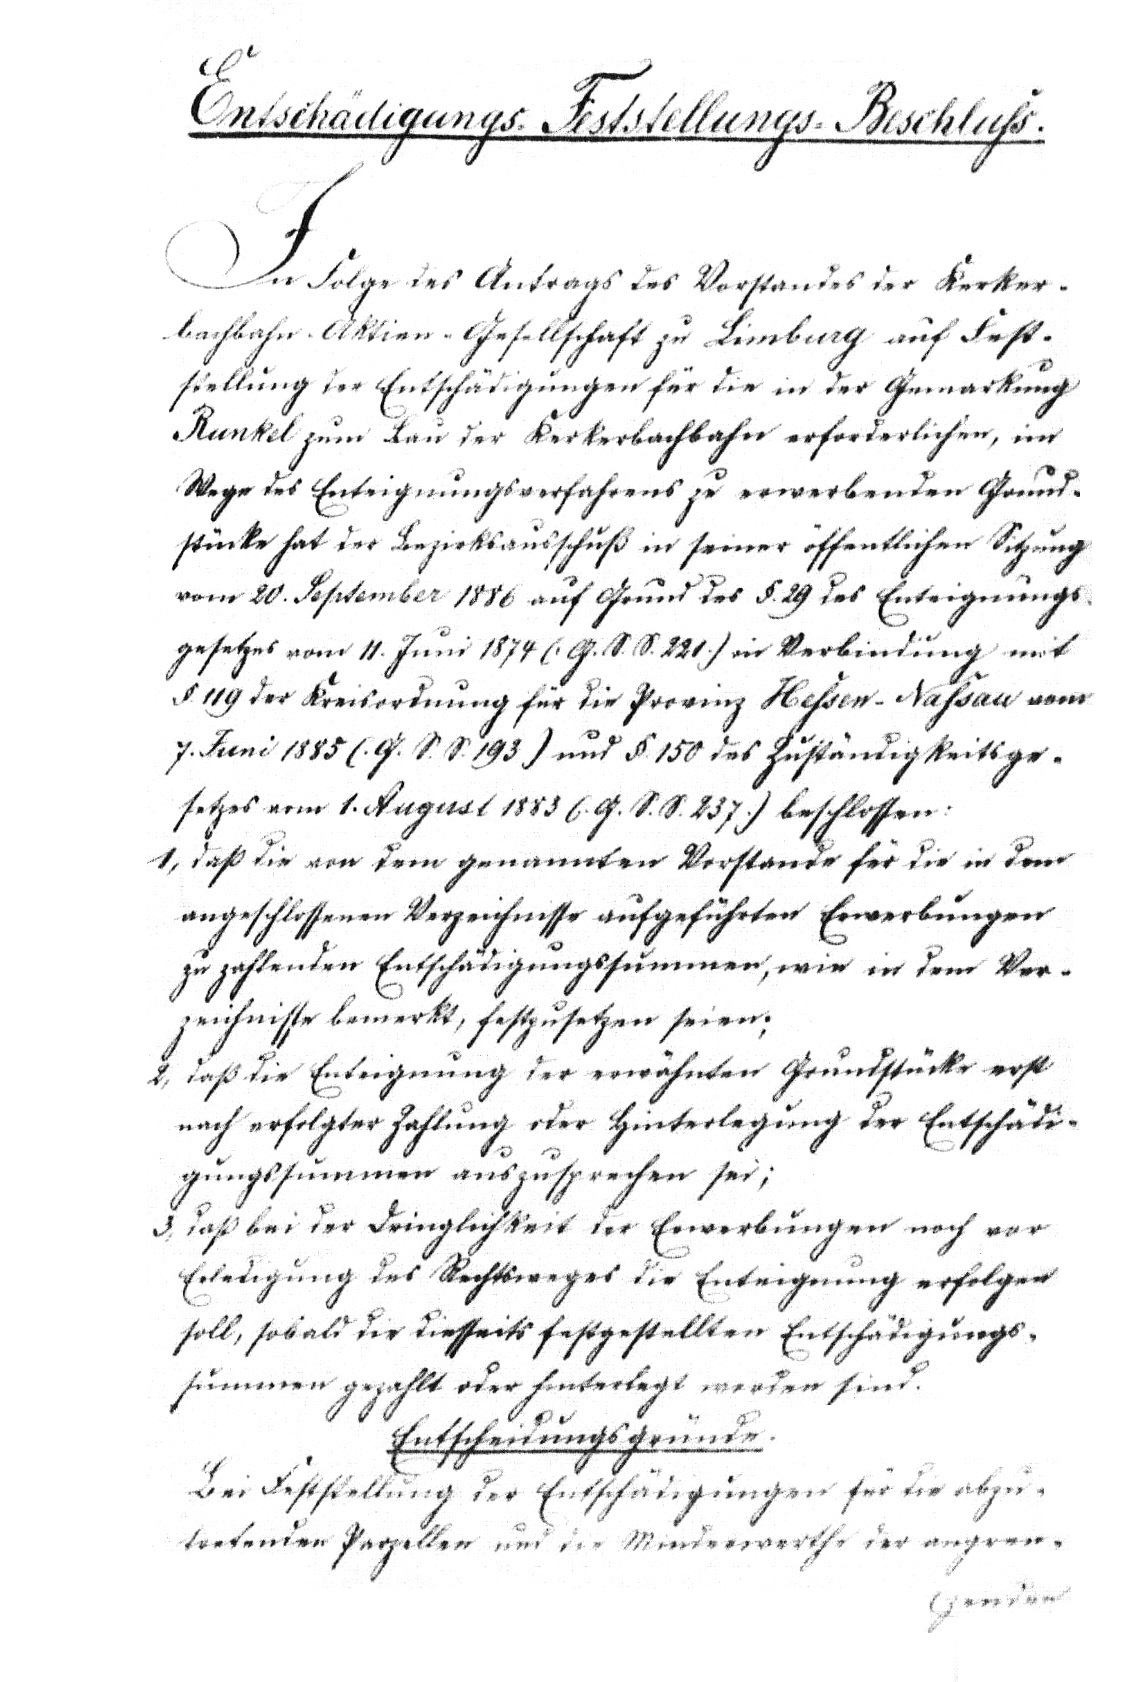 Entschädigungs-Feststellungs-Beschluss.
In Folge des Antrags des Vorstandes der Kerker-
bachbahn-Aktien-Gesellschaft zu Limburg auf Fest-
stellung der Entschädigungen für die in der Gemarkung
Runkel zum Bau der Kerkerbachbahn erforderlichen, im
Wege des Enteignungsverfahrens zu erwerbenden Grund-
stücke hat der Bezirksausschuß in seiner öffentlichen Sitzung
vom 20. September 1886 auf Grund des §. 29 des Enteignungs-
gesetzes vom 11. Juni 1874 (: G. S. S. 221.) in Verbindung mit
§. 119 der Kreisordnung für die Provinz Hessen-Nassau vom
7. Juni 1885 (. G. S. S. 193.) und §. 150 des Zuständigkeitsge-
setzes vom 1. August 1883 (. G. S. S. 237.) beschlossen:
1, daß die von dem genannten Vorstande für die in dem
angeschlossenen Verzeichnisse aufgeführten Erwerbungen
zu zahlenden Entschädigungssummen, wie in dem Ver-
zeichnisse bemerkt, festzusetzen seien;
2, daß die Enteignung der erwähnten Grundstücke erst
nach erfolgter Zahlung oder Hinterlegung der Entschädi-
gungssummen auszusprechen sei;
3, daß bei der Dringlichkeit der Erwerbungen noch vor
Erledigung des Rechtsweges die Enteignung erfolgen
soll, sobald die diesseits festgestellten Entschädigungs-
summen gezahlt oder hinterlegt worden sind.
Entscheidungsgründe.
Bei Feststellung der Entschädigungen für die abzu-
tretenden Parzellen und die Minderwerthe der angren-
zenden